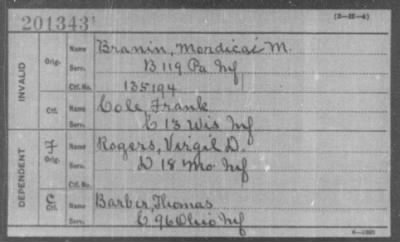 201343
(3-22-4)
INVALID
Orig. Name Branin, Mordicai M.
Serv. B 119 Pa Inf
Ctf. No. 135194
Ctf. Name Cole, Frank
Serv. E 13 Wis Inf
DEPENDENT
F Orig. Name Rogers, Virgil D.
Serv. D 18 Mo Inf
Ctf. No.
C Ctf. Name Barber, Thomas
Serv. E 96 Ohio Inf